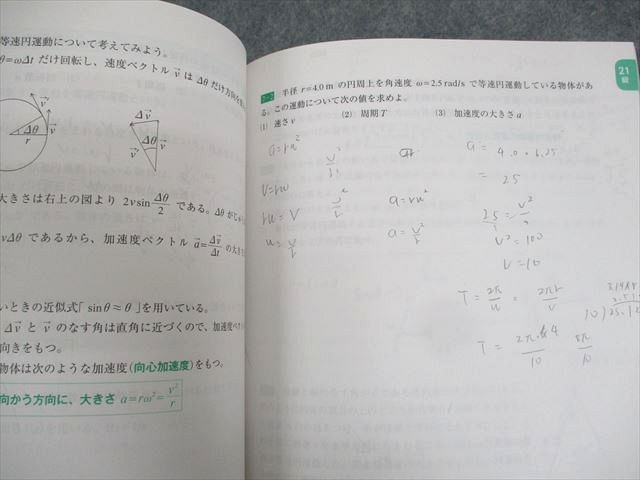 等速円運動について考えてみよう。
θ=ωΔtだけ回転し、速度ベクトル v→ は Δθ だけ方向を
Δθ
r
v→
v→
Δv→
Δθ
v→
v→
大きさは右上の図より 2v sin Δθ/2 である。Δθ が
vΔθ であるから、加速度ベクトル a→=Δv→/Δt の大
いときの近似式「sinθ≈θ」を用いている。
Δv→ と v→ のなす角は直角に近づくので、加速度ベク
向きをもつ。
物体は次のような加速度(向心加速度)をもつ。
向かう方向に、大きさ a=rω²=v²/r
21
半径 r=4.0 m の円周上を角速度 ω=2.5 rad/s で等速円運動している物体があ
る。この運動について次の値を求めよ。
(1) 速さ v (2) 周期 T (3) 加速度の大きさ a
a=rω²
v=rω
rω=v
ω=v/r
a=rω²
a=v²/r
a=4.0・6.25
=25
v²=100
v=10
T=2π/ω=2πr/v
T=
8π/10